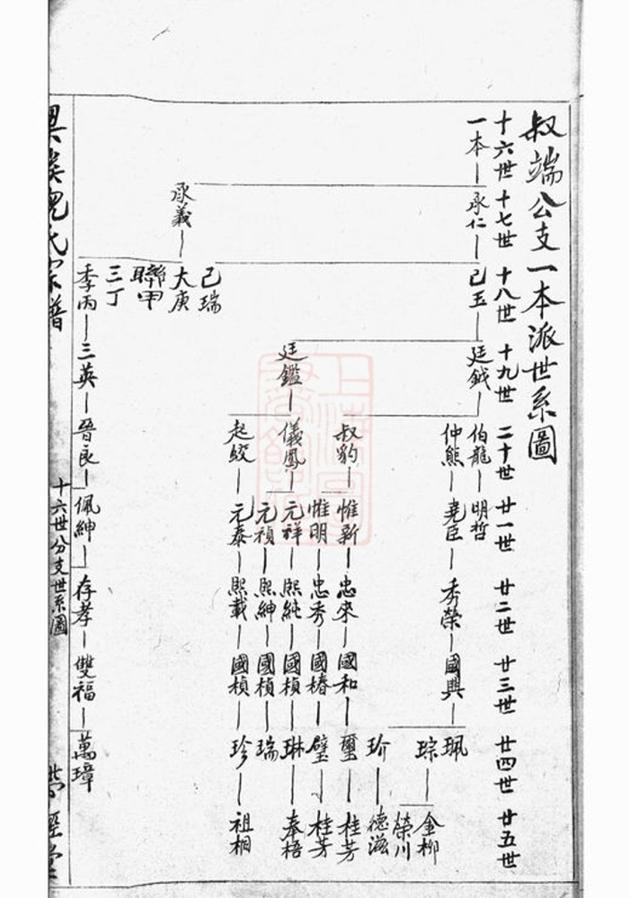 叔端公支一本派世系圖
十六世 十七世 十八世 十九世 二十世 廿一世 廿二世 廿三世 廿四世 廿五世
一本 承仁 己玉 廷鉞 伯龍 明哲
仲熊 堯臣 秀榮 國興 珮
琮 金柳
榮川
玠 德滋
叔豹 惟新 忠來 國和 璽 桂芳
惟明 忠秀 國椿 璧 桂芳
廷鑑 儀鳳 元祥 熙純 國楨 琳 奉梧
元禎 熙紳 國楨 瑞
起蛟 元泰 熙載 國楨 珍 祖桐
己瑞
承義 大庚
聯甲
三丁
季丙 三英 晉良 佩紳 存孝 雙福 萬璋
氏宗譜
十六世分支世系圖